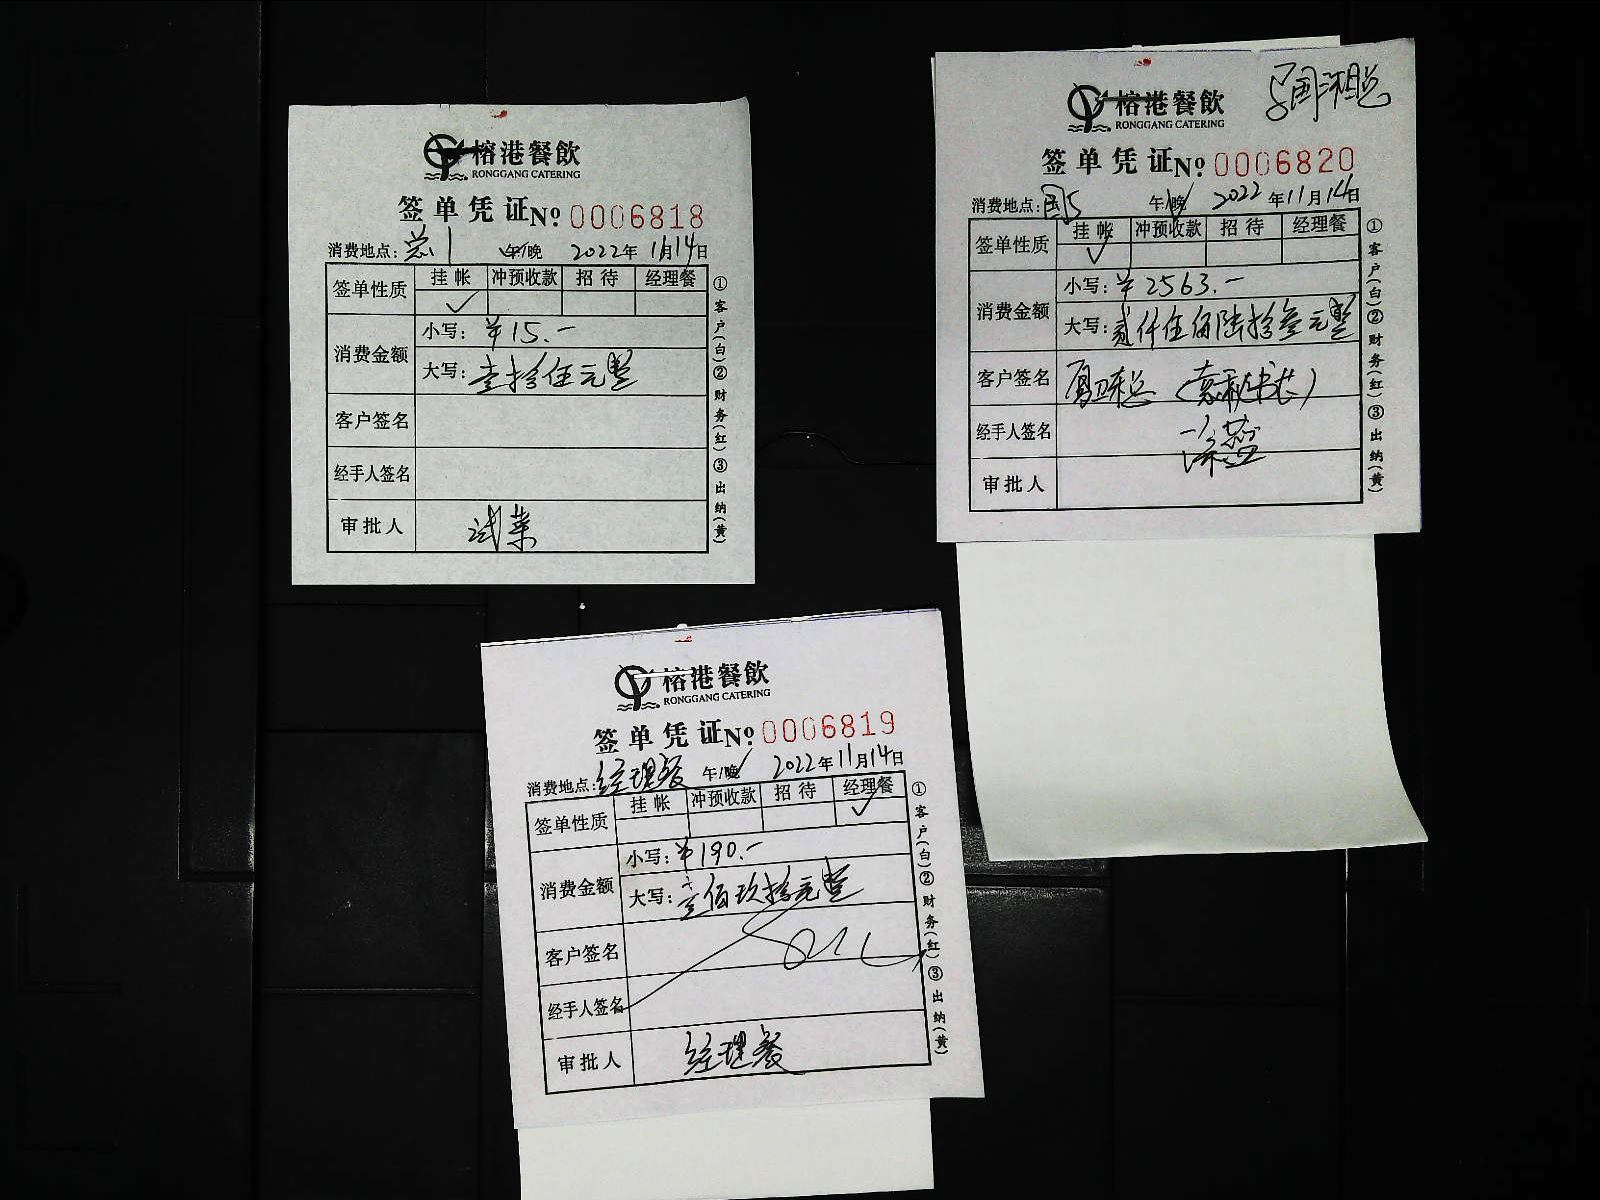 榕港餐飲
RONGGANG CATERING
签单凭证 № 0006818
消费地点: 总1 午/晚 2022年11月14日
签单性质 挂帐 冲预收款 招待 经理餐
✓
消费金额 小写: ¥15.-
大写: 壹拾伍元整
客户签名
经手人签名
审批人 试菜
①客户(白)②财务(红)③出纳(黄)
榕港餐飲
RONGGANG CATERING
签单凭证 № 0006820
消费地点: 国5 午/晚 2022年11月14日
签单性质 挂帐 冲预收款 招待 经理餐
✓
消费金额 小写: ¥2563.-
大写: 贰仟伍佰陆拾叁元整
客户签名
经手人签名
审批人
①客户(白)②财务(红)③出纳(黄)
榕港餐飲
RONGGANG CATERING
签单凭证 № 0006819
消费地点: 经理餐 午/晚 2022年11月14日
签单性质 挂帐 冲预收款 招待 经理餐
✓
消费金额 小写: ¥190.-
大写: 壹佰玖拾元整
客户签名
经手人签名
审批人 经理餐
①客户(白)②财务(红)③出纳(黄)